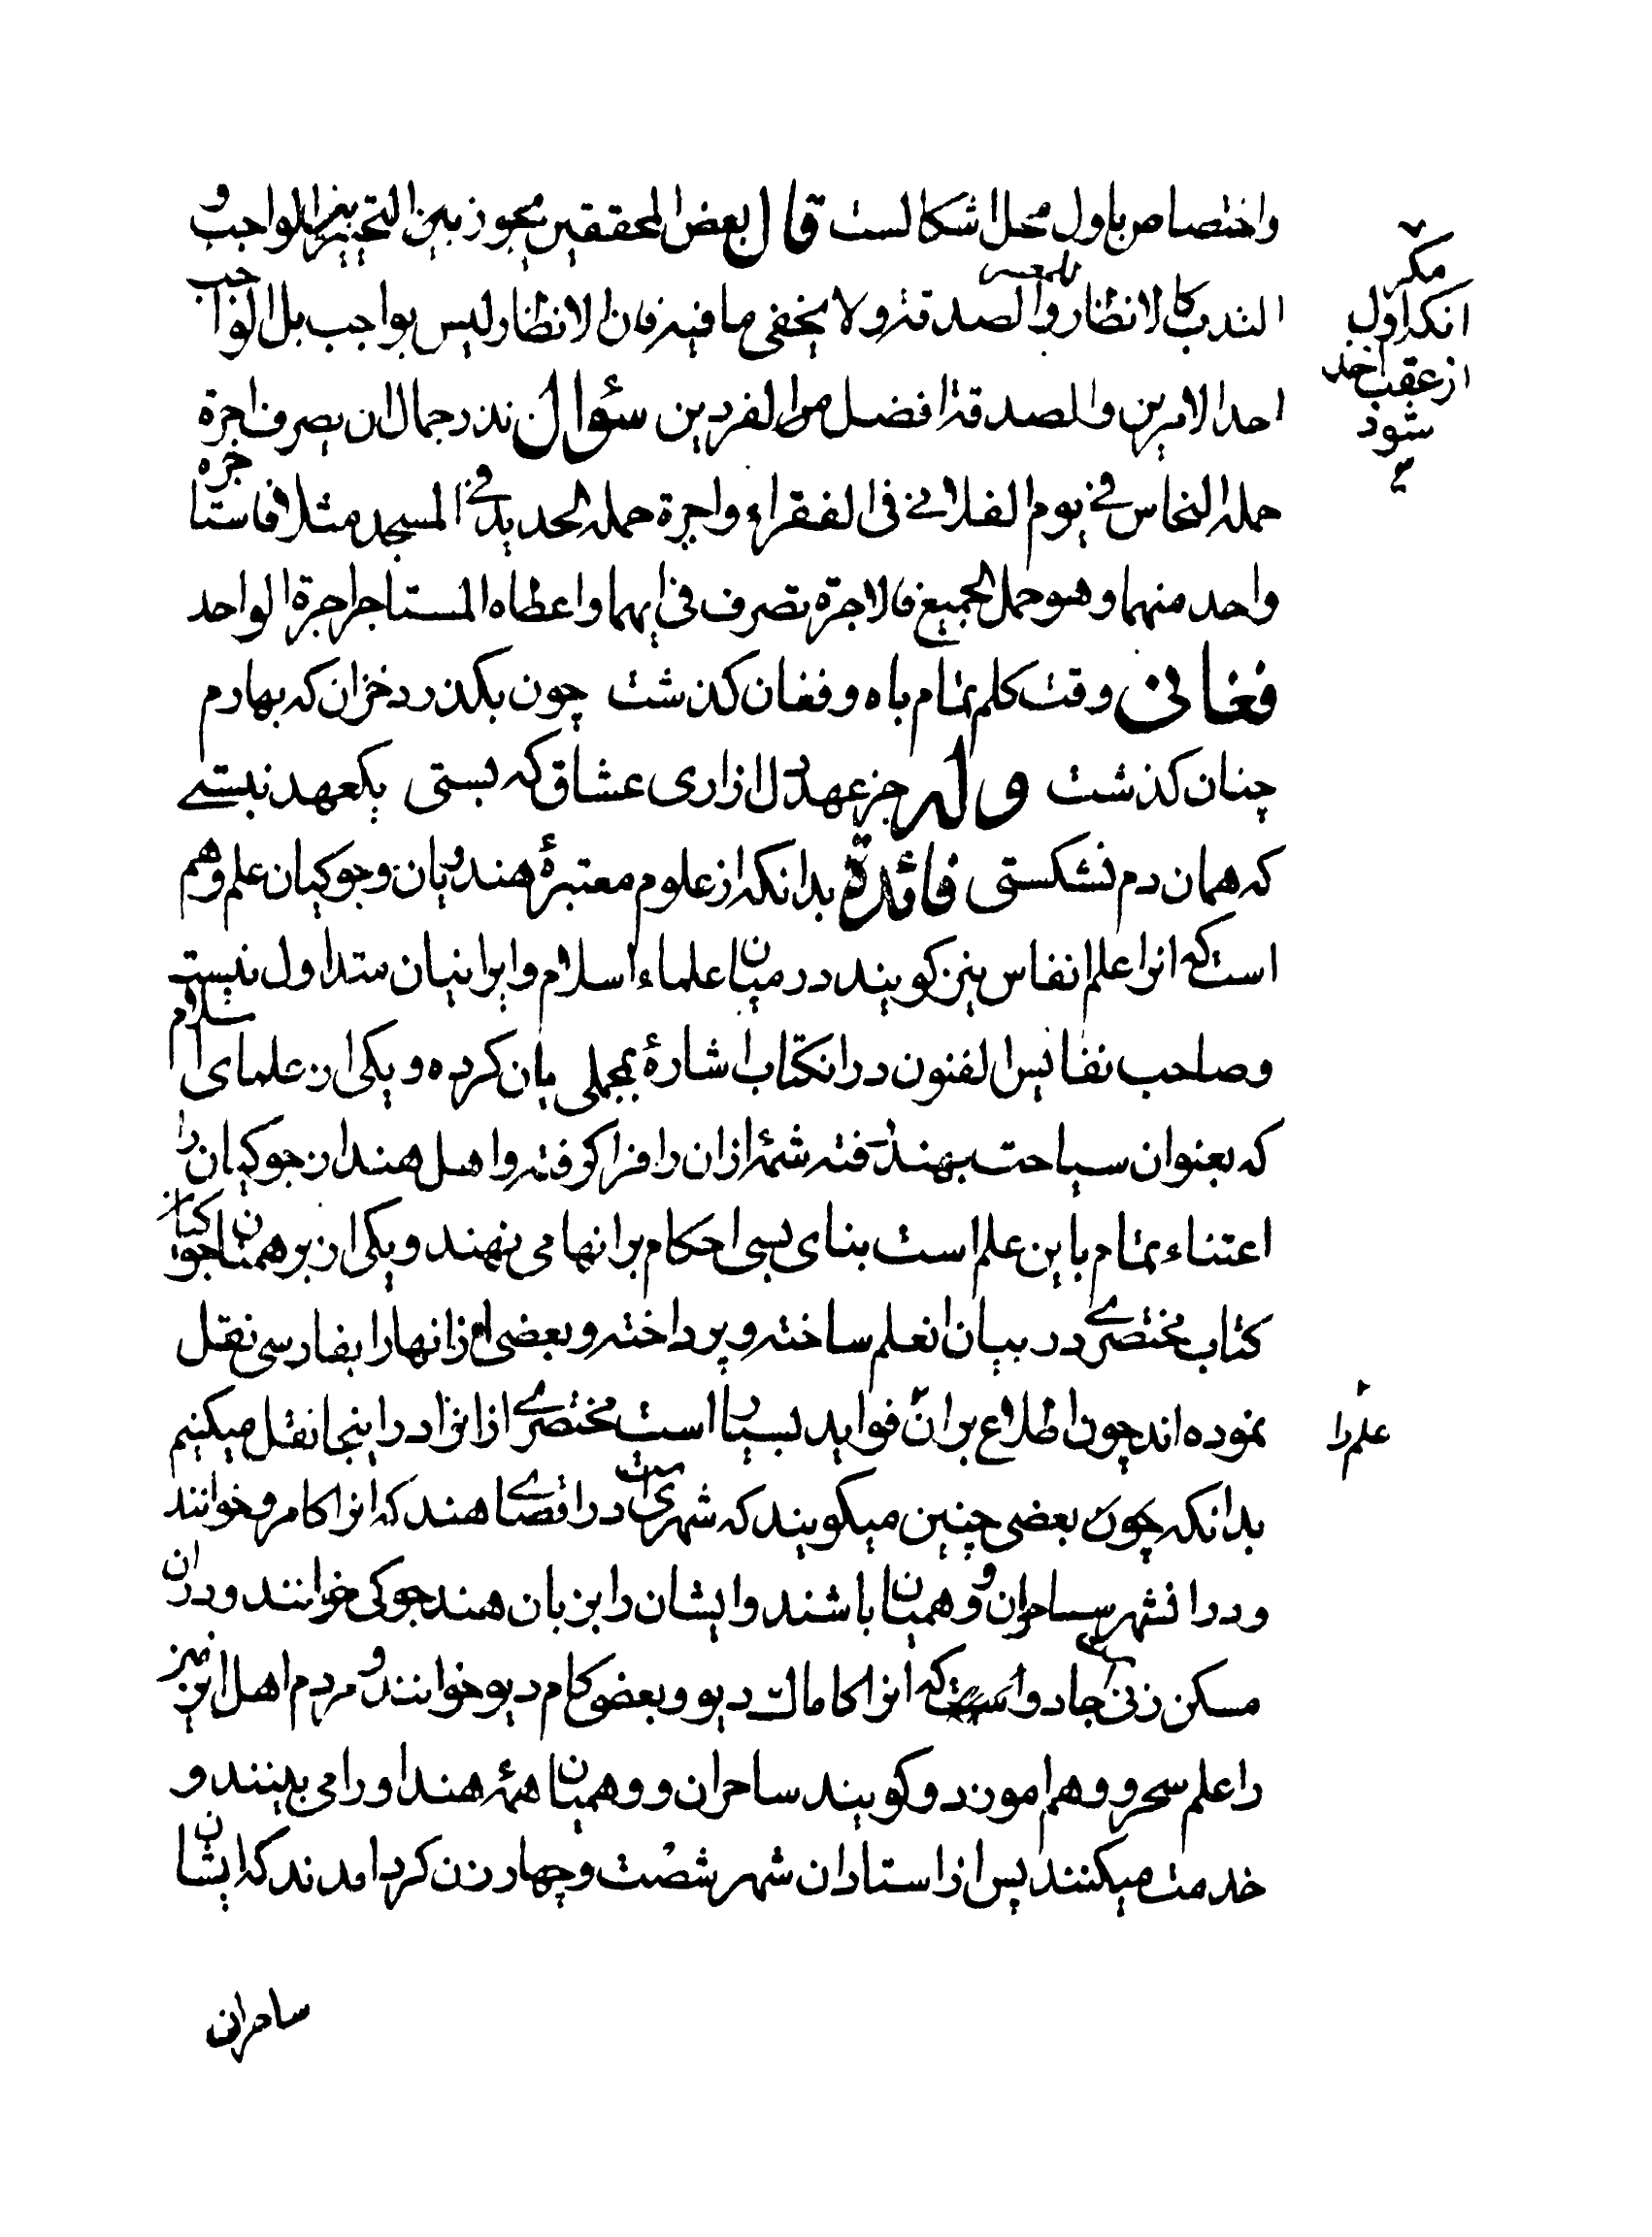 واختصاص باول محل اشکالست قال بعض المحققین یجوز بین التخییر الواجب و
الندب کالانظار والصدقة ولا یخفی ما فیه فان الانظار لیس بواجب بل الواجب
احد الامرین والصدقة افضل من الفردین سؤال نذر جمال ان یصرف اجرة
حمله النحاس فی یوم الفلانی فی الفقراء واجرة حمله الحدید فی المسجد مثلا فاستاجره
واحد منهما وهو حمل الجمیع فالاجرة تصرف فی ایهما واعطاه المستاجر اجرة الواحد
فغانی وقت کلم تمام باه وفغان کذشت چون بکذرد خزان که بهارم
چنان کذشت وله جز عهد دل ازاری عشاق که بستی یکعهد نبستی
که همان دم نشکستی فائدة بدانکه از علوم معتبرهٔ هندویان وجوکیان علم وهم
است که انرا علم انفاس نیز کویند در میان علماء اسلام وایرانیان متداول نیست
وصاحب نفایس الفنون در انکتاب اشارهٔ بمجملی بان کرده ویکی از علمای اسلام
که بعنوان سیاحت بهند رفته شمهٔ ازان را فرا کرفته واهل هند از جوکیان را
اعتناء تمام باین علم است بنای بسی احکام برانها می نهند ویکی از برهمنان جوکیان
کتاب مختصری در بیان انعلم ساخته وپرداخته وبعضی از انها را بفارسی نقل
نموده اند چون اطلاع بران فواید بسیار است مختصری از انرا در اینجا نقل میکنیم
بدانکه چون بعضی چنین میکویند که شهری است در اقصای هند که انرا کامرو خوانند
ودر انشهر ساحران ووهمیان باشند وایشان را بزبان هند جوکی خوانند ودران
مسکن زنی جادو است که انرا کاماک دیو وبعضی کام دیو خوانند ومردم اهل این
را علم سحر ووهم اموزد وکویند ساحران ووهمیان همهٔ هند او را می بینند و
خدمت میکنند پس از استادان شهر شصت وچهار زن کرد امدند که ایشان
ساحران
مکر
انکه اول
از عقب اخذ
شود
علم را